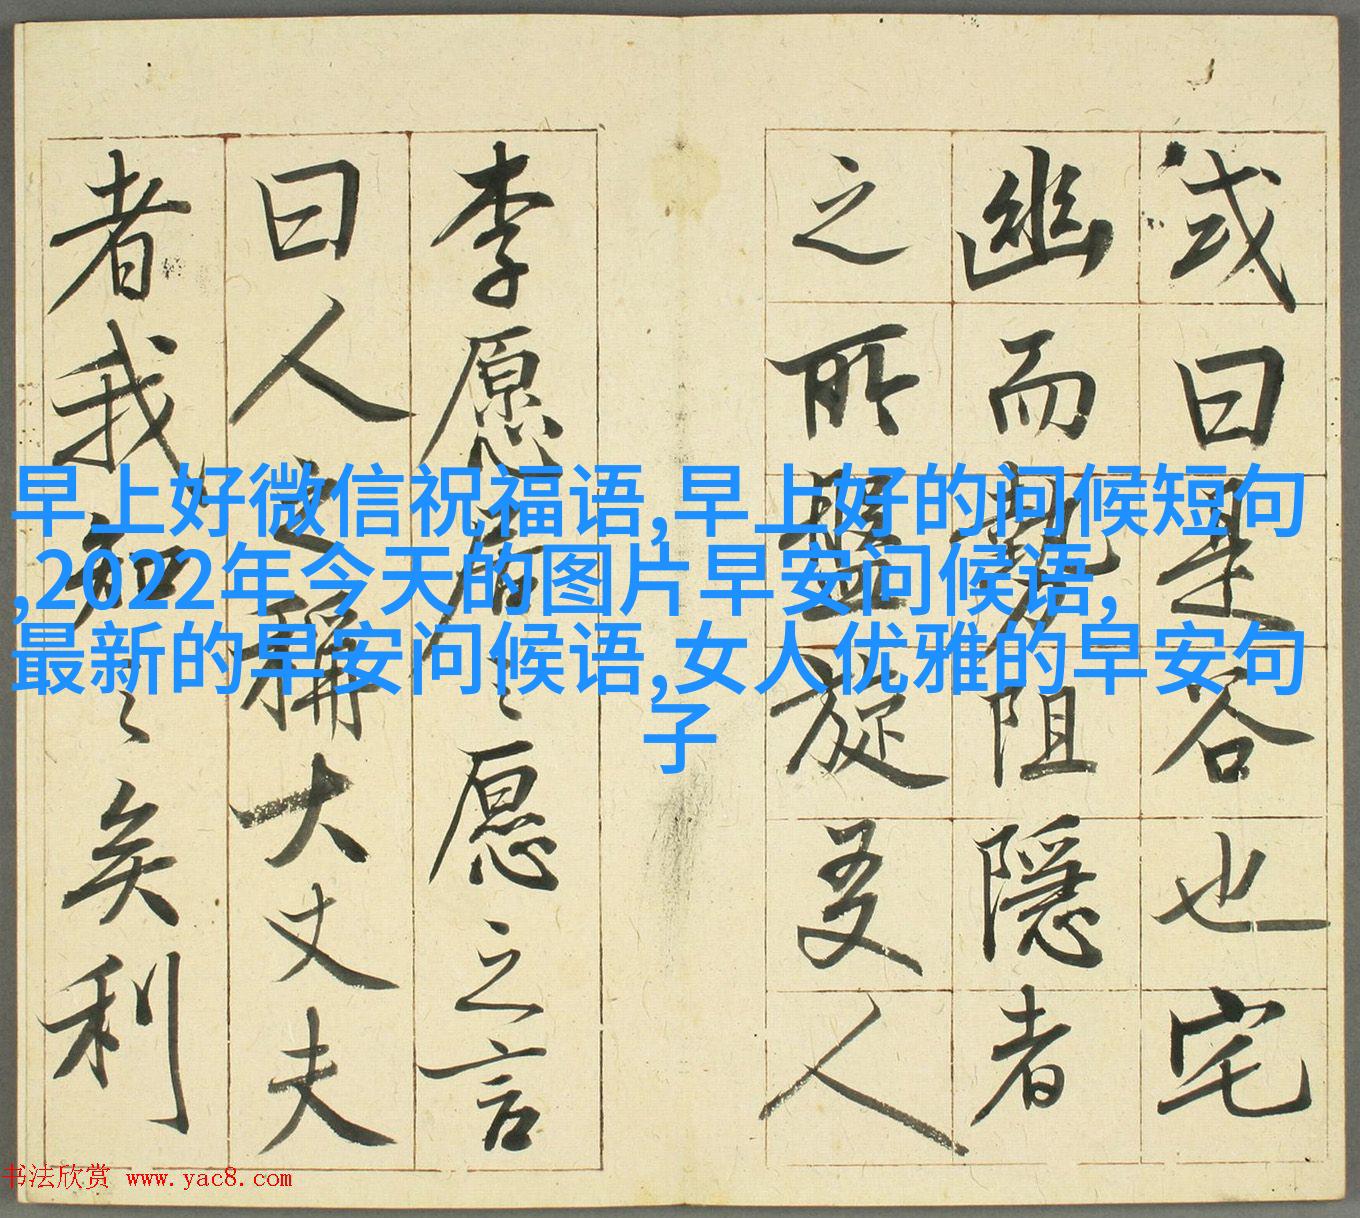 或曰是谷也宅
幽而勢阻隱者
之所盤旋友人
李愿居之愿之言
曰人之稱大丈夫
者我知之矣利
早上好微信祝福语,早上好的问候短句
,2022年今天的图片早安问候语,
最新的早安问候语,女人优雅的早安句
子
书法欣赏 www.yac8.com